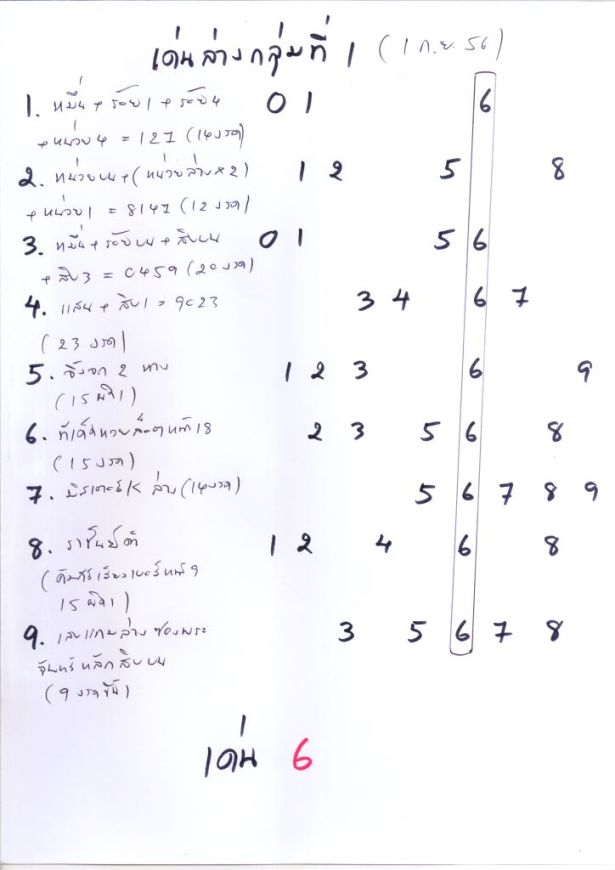 เด่นล่างกลุ่มที่ 1 (1 ก.ย. 56)
1. หมื่น + ร้อย1 + ร้อย4 0 1 6
+ หน่วย4 = 127 (14งวด)
2. หน่วยบน + (หน่วยล่าง×2) 1 2 5 8
+ หน่วย1 = 8147 (12งวด)
3. หมื่น + ร้อยบน + สิบบน 0 1 5 6
+ สิบ3 = 0459 (20งวด)
4. แสน + สิบ1 = 9023 3 4 6 7
(23 งวด)
5. 2 ทาง 1 2 3 6 9
(15 )
6. หน้า18 2 3 5 6 8
(15งวด)
7. ล่าง (14งวด) 5 6 7 8 9
8. ราชันย์ดำ 1 2 4 6 8
( หน้า 9
15 )
9. เลขแถมล่างซองพระ 3 5 6 7 8
จันทร์ หลักสิบบน
(9 งวด )
เด่น 6